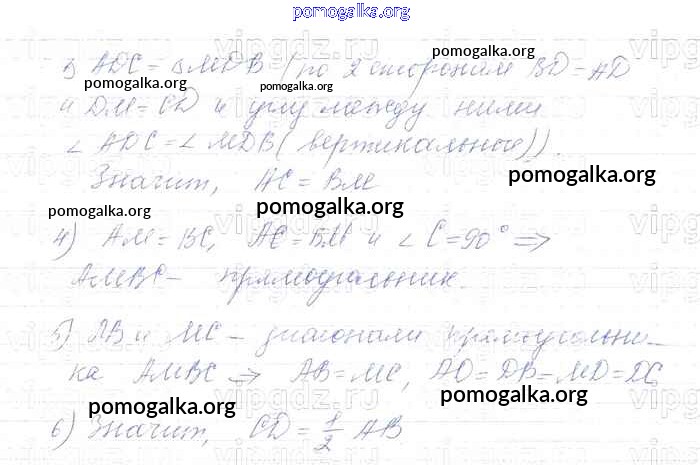 pomogalka.org
pomogalka.org
Δ ADC = Δ MDB (по 2 сторонам BD = AD
pomogalka.org
и DM = CD и углу между ними
∠ ADC = ∠ MDB (вертикальные)).
Значит, AC = BM
pomogalka.org
pomogalka.org
pomogalka.org
4) AM = BC, AC = BM и ∠ C = 90° ⇒
AMBC – прямоугольник.
5) AB и MC – диагонали прямоугольни-
ка AMBC ⇒ AB = MC, AD = DB = MD = DC
pomogalka.org
pomogalka.org
6) Значит, CD = 1/2 AB
pomogalka.org
pomogalka.org